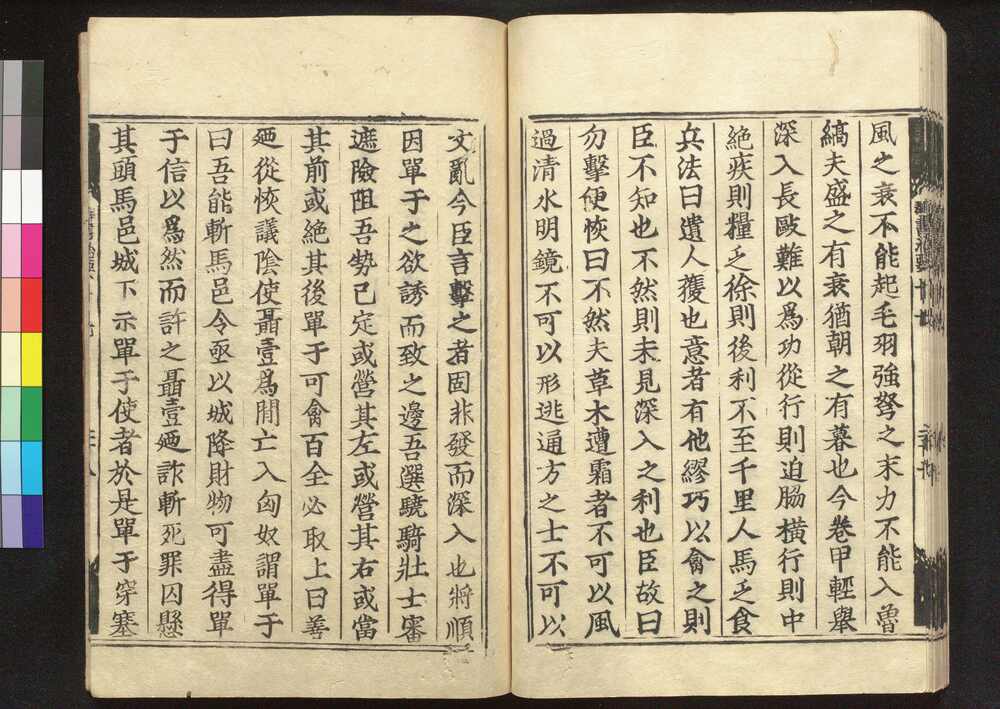 風之衰不能起毛羽強弩之末力不能入魯
縞夫盛之有衰猶朝之有暮也今卷甲輕舉
深入長敺難以爲功從行則迫脇橫行則中
絶疾則糧乏徐則後利不至千里人馬乏食
兵法曰遺人獲也意者有他繆巧以禽之則
臣不知也不然則未見深入之利也臣故曰
勿擊便恢曰不然夫草木遭霜者不可以風
過清水明鏡不可以形逃通方之士不可以
文亂今臣言擊之者固非發而深入也將順
因單于之欲誘而致之邊吾選驍騎壯士審
遮險阻吾勢已定或營其左或營其右或當
其前或絶其後單于可禽百全必取上曰善
廼從恢議陰使聶壹爲間亡入匈奴謂單于
曰吾能斬馬邑令丞以城降財物可盡得單
于信以爲然而許之聶壹廼詐斬死罪囚懸
其頭馬邑城下示單于使者於是單于穿塞